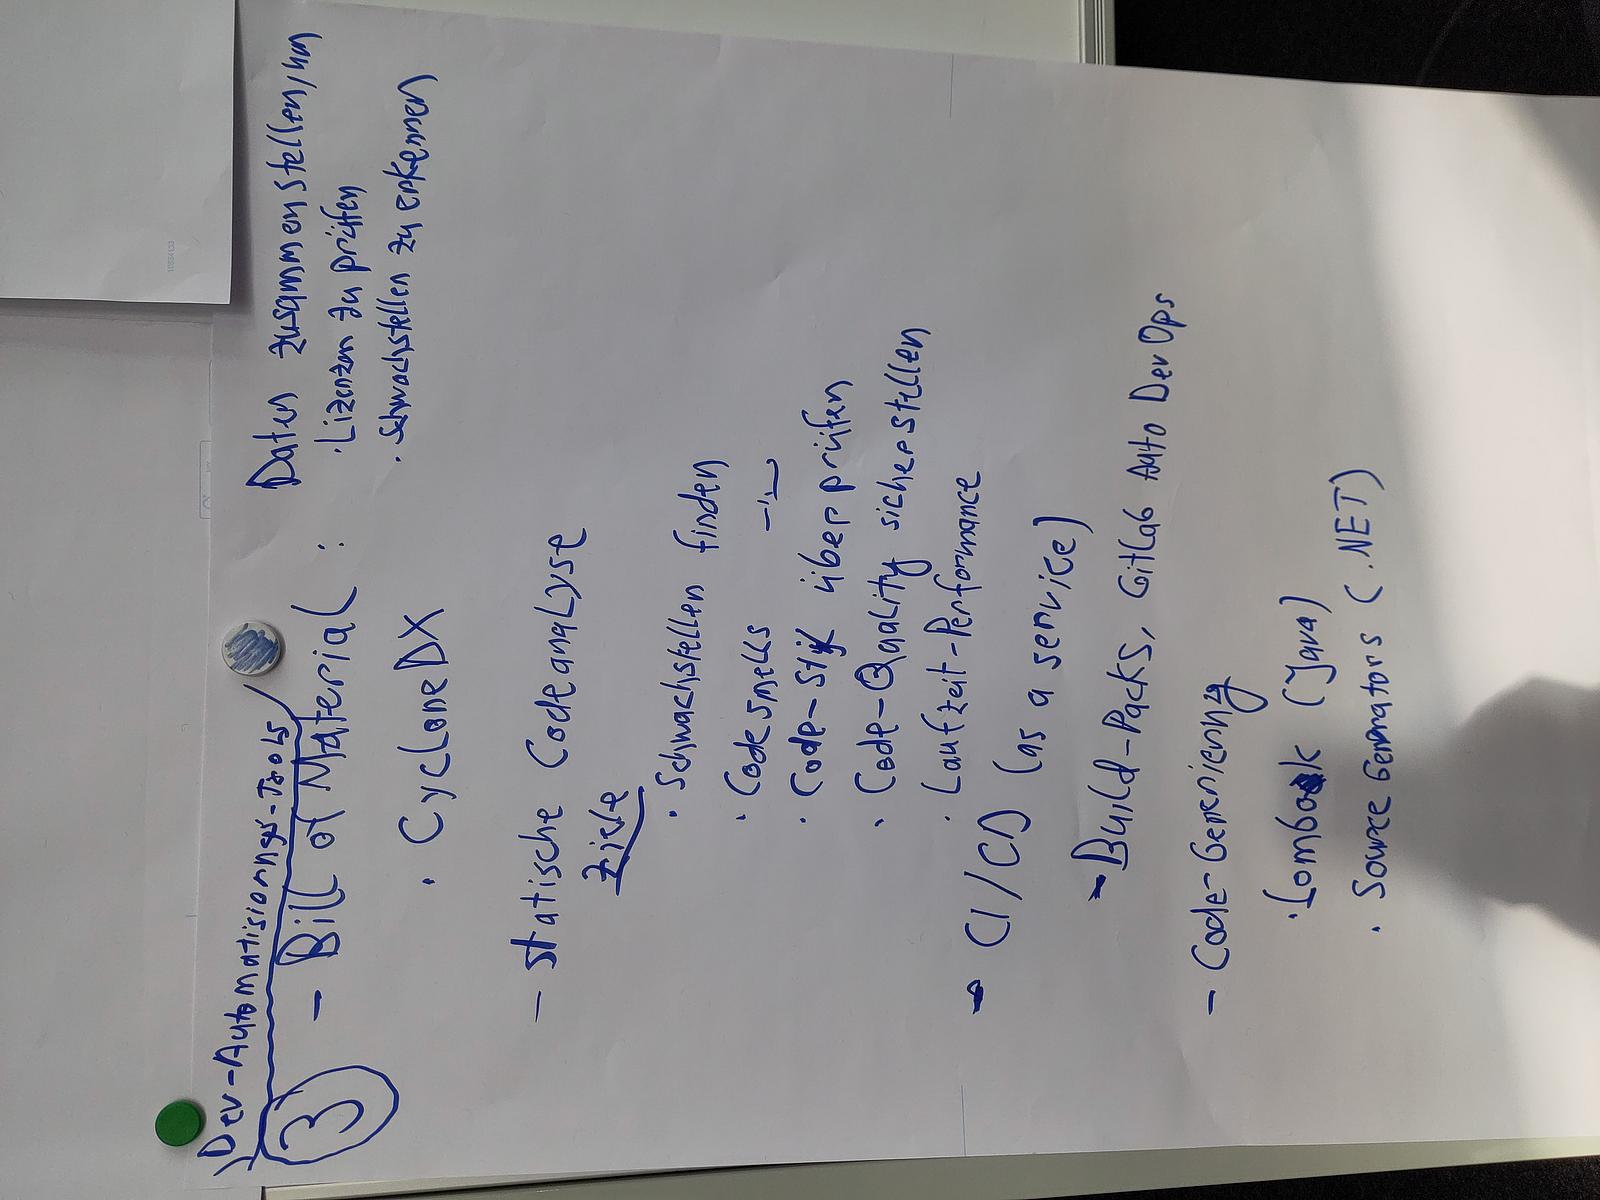 Dev-Automatisierungs-Tools
3
- Bill of Material :
Daten zusammenstellen, um
· Lizenzen zu prüfen
· Schwachstellen zu erkennen
· CycloneDX
- statische Codeanalyse
Ziele
· Schwachstellen finden
· Code smells -"-
· Code-Stil überprüfen
· Code-Quality sicherstellen
· Laufzeit-Performance
- CI/CD (as a service)
- Build-Packs, GitLab Auto DevOps
- Code-Generierung
· Lombok (Java)
· Source Generators (.NET)
10534133